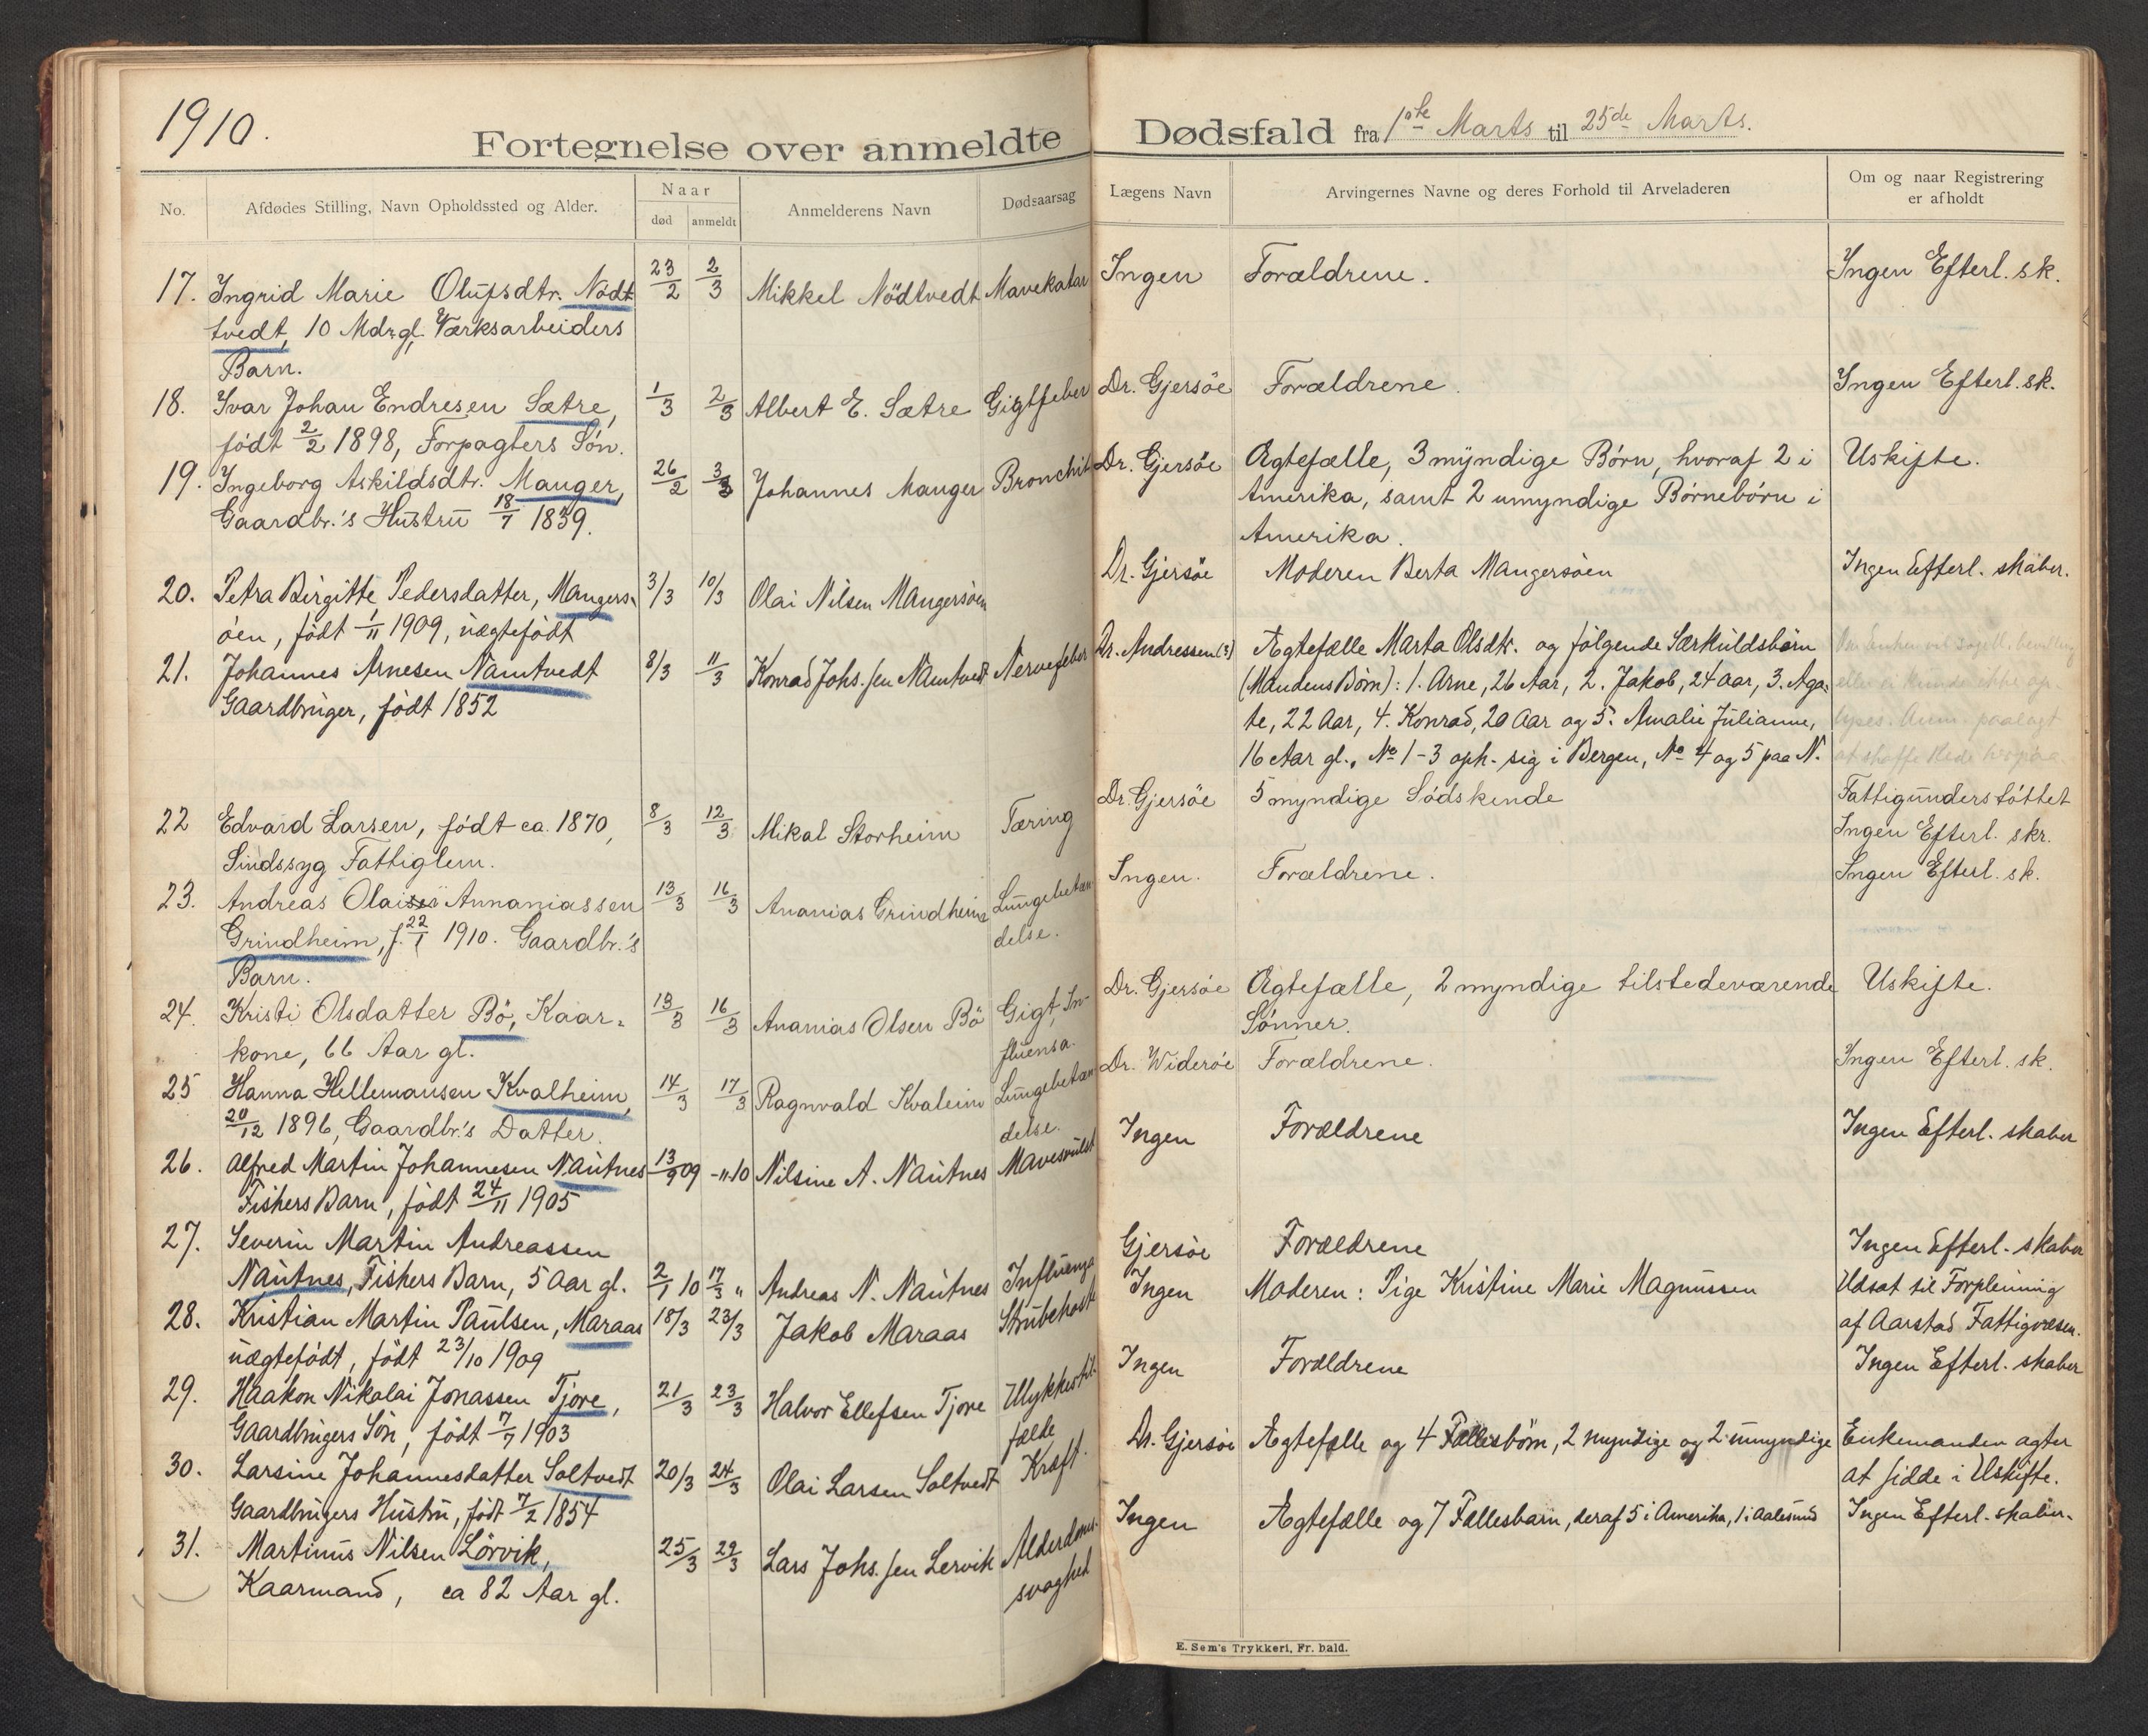 1910.
Fortegnelse over anmeldte Dødsfald fra 1ste Marts til 25de Marts.
No. Afdødes Stilling, Navn Opholdssted og Alder. Naar død anmeldt Anmelderens Navn Dødsaarsag Lægens Navn Arvingernes Navne og deres Forhold til Arveladeren Om og naar Registrering er afholdt
17. Ingrid Marie Olufsdtr. Nödt- 23/2 2/3 Mikkel Nödtvedt Mavekatar Ingen Forældrene. Ingen Efterl. sk.
tvedt, 10 Mdr. gl. Værksarbeiders
Barn.
18. Ivar Johan Endresen Sætre, 1/3 2/3 Albert E. Sætre Gigtfeber Dr. Gjersöe Forældrene. Ingen Efterl. sk.
født 2/2 1898, Forpagters Sön.
19. Ingeborg Askildsdtr. Manger, 26/2 3/3 Johannes Manger Bronchit Dr. Gjersöe Ægtefælle, 3 myndige Børn, hvoraf 2 i Uskifte.
Gaardbr.'s Hustru 18/7 1839. Amerika, samt 2 umyndige Børnebörn i
Amerika.
20. Petra Birgitte Pedersdatter, Mangers- 3/3 10/3 Olai Nilsen Mangersöen Dr. Gjersöe Moderen Berta Mangersöen Ingen Efterl. skaber.
öen, født 1/11 1909, uægtefödt
21. Johannes Arnesen Namtvedt 8/3 11/3 Konrad Johs.sen Namtvedt Nervefeber Dr. Andressen (?) Ægtefælle Marta Olsdtr. og følgende Særkuldsbörn
Gaardbruger, født 1852 (Mandens Börn): 1. Arne, 26 Aar, 2. Jakob, 24 aar, 3. Aga-
te, 22 Aar, 4. Konrad, 20 Aar og 5. Amalie Julianne,
16 Aar gl., No 1-3 oph. sig i Bergen, No 4 og 5 paa N.
22 Edvard Larsen, født ca. 1870, 8/3 12/3 Mikal Storheim Tæring Dr. Gjersöe 5 myndige Södskende Fattigunderstöttet
Sindssyg Fattiglem. Ingen Efterl. skr.
23. Andreas Olai Annaniassen 13/3 16/3 Ananias Grindheim Lungebetæn- Ingen. Forældrene. Ingen Efterl. sk.
Grindheim, f. 22/1 1910. Gaardbr.'s delse.
Barn.
24. Kristi Olsdatter Bö, Kaar- 13/3 16/3 Ananias Olsen Bö Gigt, In- Dr. Gjersöe Ægtefælle, 2 myndige tilstedeværende Uskifte.
kone, 66 Aar gl. fluensa. Sönner.
25 Hanna Hellemansen Kvalheim, 14/3 17/3 Ragnvald Kvaleim Lungebetæn- Dr. Wideröe Forældrene. Ingen Efterl. sk.
20/12 1896, Gaardbr.'s Datter. delse.
26. Alfred Martin Johannesen Nautnes 13/9 09 -"-10 Nilsine A. Nautnes Mavesvulst Ingen Forældrene Ingen Efterl. skaber
Fiskers Barn, født 24/11 1905
27. Severin Martin Andreassen Gjersöe Forældrene Ingen Efterl. skaber
Nautnes, Fiskers Barn, 5 Aar gl. 2/1 10 17/3 " Andreas N. Nautnes Influenza
28. Kristian Martin Paulsen, Maraas 18/3 23/3 Jakob Maraas Strubehoste Ingen Moderen: Pige Kristine Marie Magnussen Udsat til Forpleining
uægtefödt, født 23/10 1909 af Aarstad Fattigvæsen.
29. Haakon Nikolai Jonassen Tjore, 21/3 23/3 Halvor Ellefsen Tjore Ulykkestil- Ingen Forældrene Ingen Efterl. skaber
Gaardbrugers Sön, født 7/7 1903 fælde
30. Larsine Johannesdatter Soltvedt 20/3 24/3 Olai Larsen Soltvedt Kræft. Dr. Gjersöe Ægtefælle og 4 Fællesbörn, 2 myndige og 2 umyndige Enkemanden agter
Gaardbrugers Hustru, født 7/2 1854 at sidde i Uskifte.
31. Martinus Nilsen Lörvik, 25/3 29/3 Lars Johs.sen Lervik Alderdoms- Ingen Ægtefælle og 7 Fællesbarn, deraf 5 i Amerika, 1 i Aalesund Ingen Efterl. skaber.
Kaarmand, ca 82 Aar gl. svaghed
E. Sem's Trykkeri, Fr. hald.